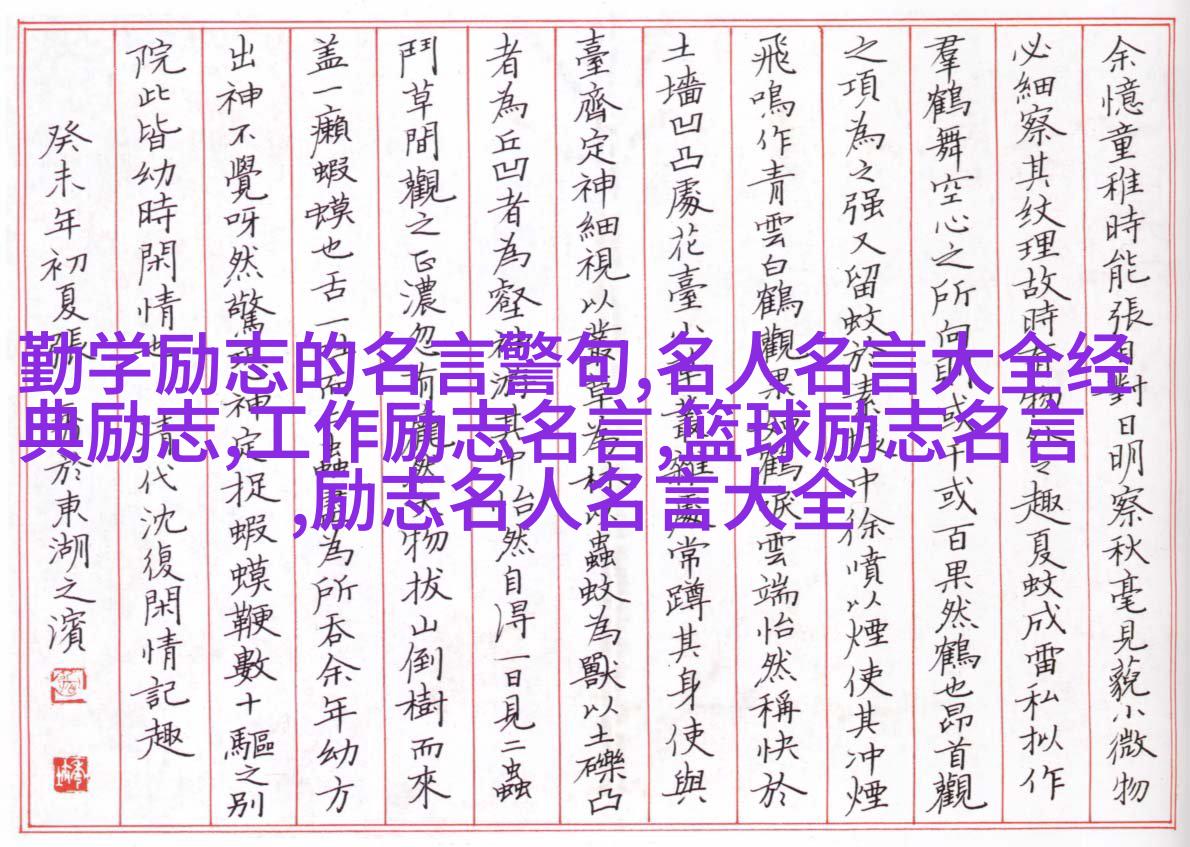 余憶童稚時能張目對日明察秋毫見藐小微物
必細察其纹理故時有物之趣夏蚊成雷私拟作
羣鶴舞空心之所向則或千或百果然鶴也昂首觀
之項為之强又留蚊於素帳中徐噴以煙使其冲煙
飛鳴作青雲白鶴觀果如鶴唳雲端怡然稱快於
土墻凹凸處花臺小草叢雜處常蹲其身使與
臺齊定神細視以叢草為林以蟲蚊為獸以土礫凸
者為丘凹者為壑神游其中怡然自得一日見二蟲
鬥草間觀之正濃忽有龐然物拔山倒樹而來
盖一癩蝦蟆也舌一吐而蟲盡為所吞余年幼方
出神不覺呀然驚恐神定捉蝦蟆鞭數十驅之别
院此皆幼時閑情也清代沈復閑情記趣
癸未年初夏張於東湖之濱
勤学励志的名言警句,名人名言大全经
典励志,工作励志名言,篮球励志名言
,励志名人名言大全